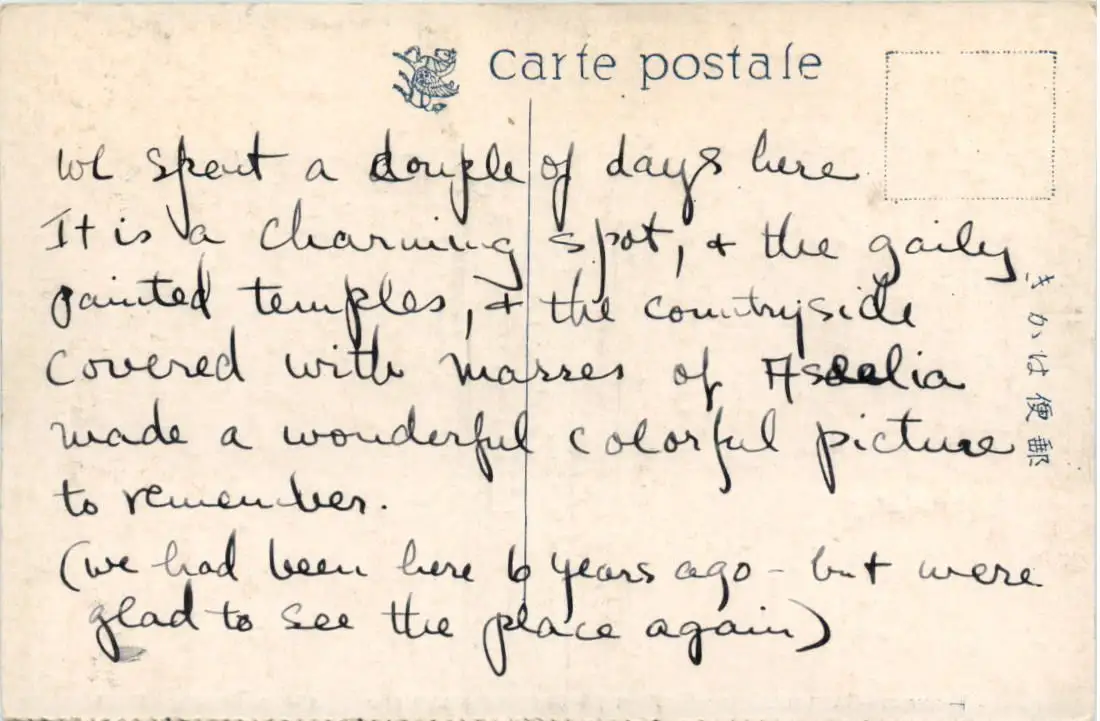 Carte postale
We spent a couple of days here
It is a charming spot, + the gaily
painted temples, + the countryside
covered with masses of Asaelia
made a wonderful colorful picture
to remember.
(we had been here 6 years ago - but were
glad to see the place again)
きかは便郵